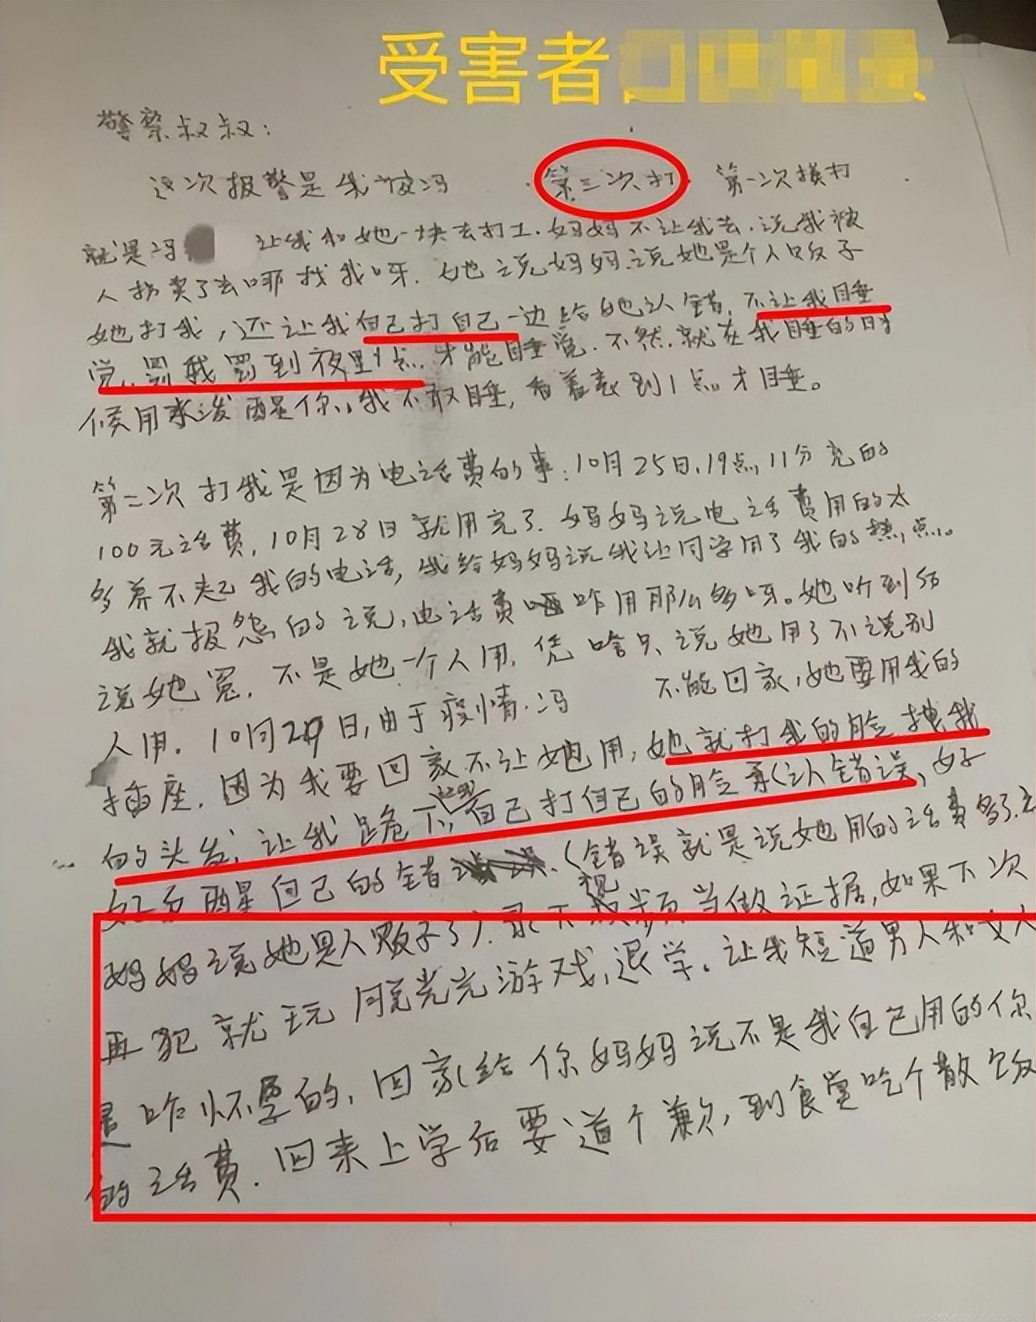 受害者
警察叔叔：
这次报警是我被冯 第三次打 第一次挨打
就是冯 让我和她一块去打工.妈妈不让我去.说我被
人拐卖了去哪找我呀.她说妈妈说她是个人贩子
她打我，还让我自己打自己一边给她认错，不让我睡
觉，罚我罚到夜里1点才能睡觉.不然就在我睡的时
候用水泼醒你，我不敢睡，看着表到1点才睡。
第二次打我是因为电话费的事：10月25日，19点，11分充的
100元话费，10月28日就用完了.妈妈说电话费用的太
多养不起我的电话，我给妈妈说我让同学用了我的热点。
我就报怨的说，电话费咋用那么多呀。她听到后
说她冤.不是她一个人用.凭啥只说她用了不说别
人用.10月29日，由于疫情.冯 不能回家，她要用我的
插座.因为我要回家不让她用，她就打我的脸拽我
的头发，让我跪下，自己打自己的脸承认错误，好
好反醒自己的错.(错误就是说她用的话费多了.
妈妈说她是人贩子了).录下视频当做证据，如果下次
再犯就玩脱光光游戏，退学。让我知道男人和女人
是咋怀孕的，回家给你妈妈说不是我自己用的你
的话费.回来上学后要道个歉，到食堂吃个散饭